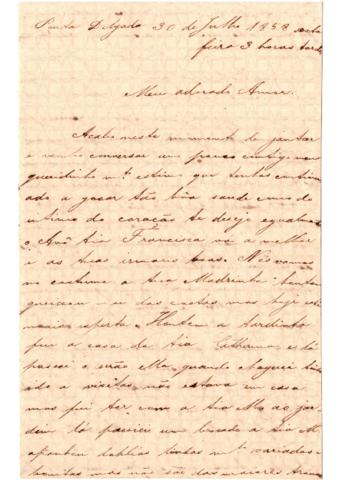 Ponta Delgada 30 de Julho 1888 sexta
feira 3 horas tarde
Meu adorado Amor.
Acabo neste momento de jantar
e venho conversar um pouco contigo meu
queridinho m.to estimo que tenhas continu
ado a gosar tão bôa saude como do
intimo do coração te desejo egualmente
a tia Francisca va a melhor
e as tuas irmans boas. Nós vamos
no costume a tua Madrinha
das mas hoje está
mais esperta. Hontem a tardinha
fui a casa da tia Catherina e lá
passei o serão Ella quando cheguei tinha
ido a visitas não estava em casa
mas fui ter com a tia M. ao jar
dim lá passeei um bocado a tia M.
apanhou dahlias tinha m.to variadas
bonitas mas não são das maiores